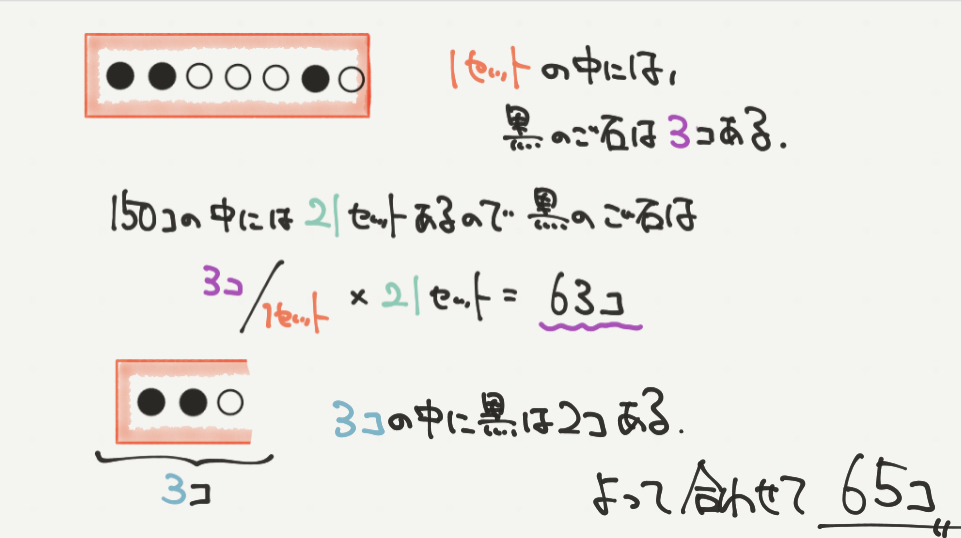 1セットの中には,
黒のご石は3コある.
150コの中には21セットあるので黒のご石は
3コ/1セット × 21セット = 63コ
3コの中に黒は2コある.
3コ
よって合わせて 65コ